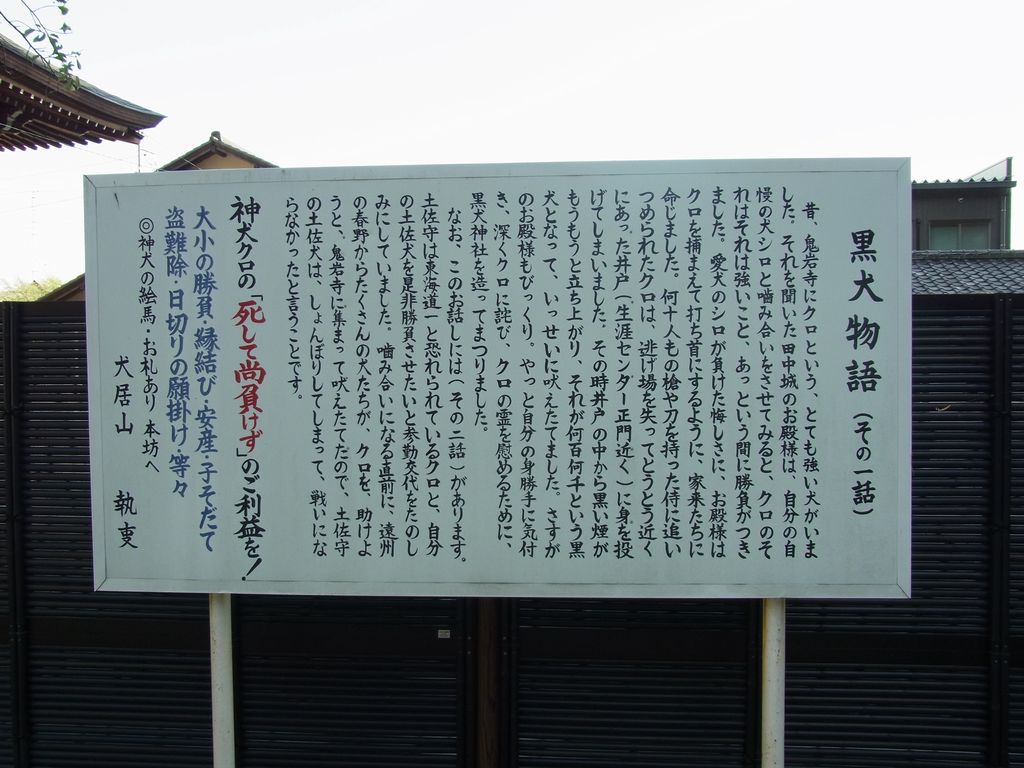 黒犬物語（その一話）
昔、鬼岩寺にクロという、とても強い犬がいま
した。それを聞いた田中城のお殿様は、自分の自
慢の犬シロと嚙み合いをさせてみると、クロのそ
れはそれは強いこと、あっという間に勝負がつき
ました。愛犬のシロが負けた悔しさに、お殿様は
クロを捕まえて打ち首にするように、家来たちに
命じました。何十人もの槍や刀を持った侍に追い
つめられたクロは、逃げ場を失ってとうとう近く
にあった井戸（生涯センター正門近く）に身を投
げてしまいました。その時井戸の中から黒い煙が
もうもうと立ち上がり、それが何百何千という黒
犬となって、いっせいに吠えたてました。さすが
のお殿様もびっくり。やっと自分の身勝手に気付
き、深くクロに詫び、クロの霊を慰めるために、
黒犬神社を造ってまつりました。
なお、このお話しには（その二話）があります。
土佐守は東海道一と恐れられているクロと、自分
の土佐犬を是非勝負させたいと参勤交代をたのし
みにしていました。嚙み合いになる直前に、遠州
の春野からたくさんの犬たちが、クロを、助けよ
うと、鬼岩寺に集まって吠えたてたので、土佐守
の土佐犬は、しょんぼりしてしまって、戦いにな
らなかったと言うことです。
神犬クロの「死して尚負けず」のご利益を！
大小の勝負・縁結び・安産・子そだて
盗難除・日切りの願掛け・等々
◎神犬の絵馬・お札あり 本坊へ
犬居山 執事